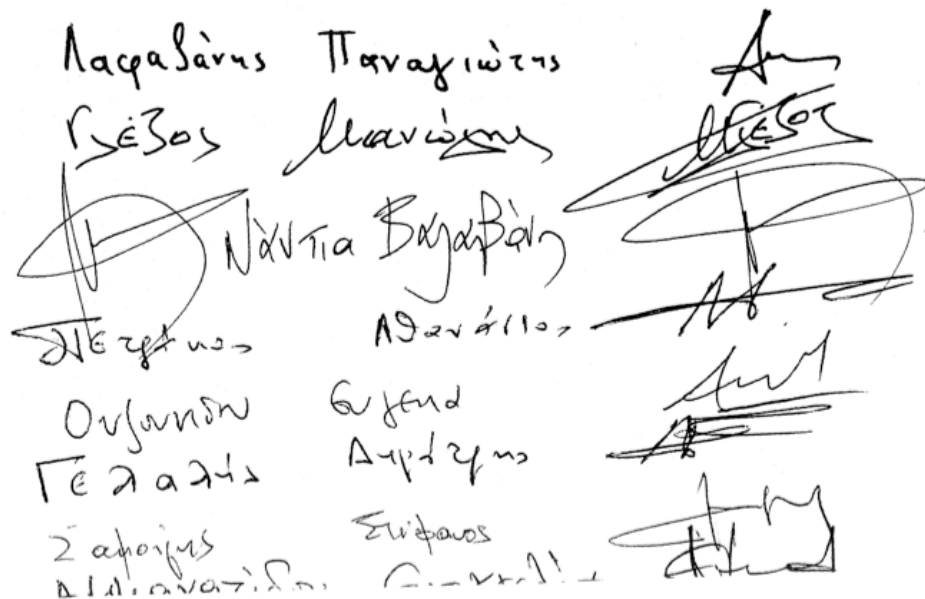 Λαφαζάνης Παναγιώτης
Γλέζος Μανώλης Γλέζος
Νάντια Βαλαβάνη
Πετράκος Αθανάσιος
Ουζουνίδου Ευγενία
Γελαλής Δημήτρης
Σαμοΐλης Στέφανος